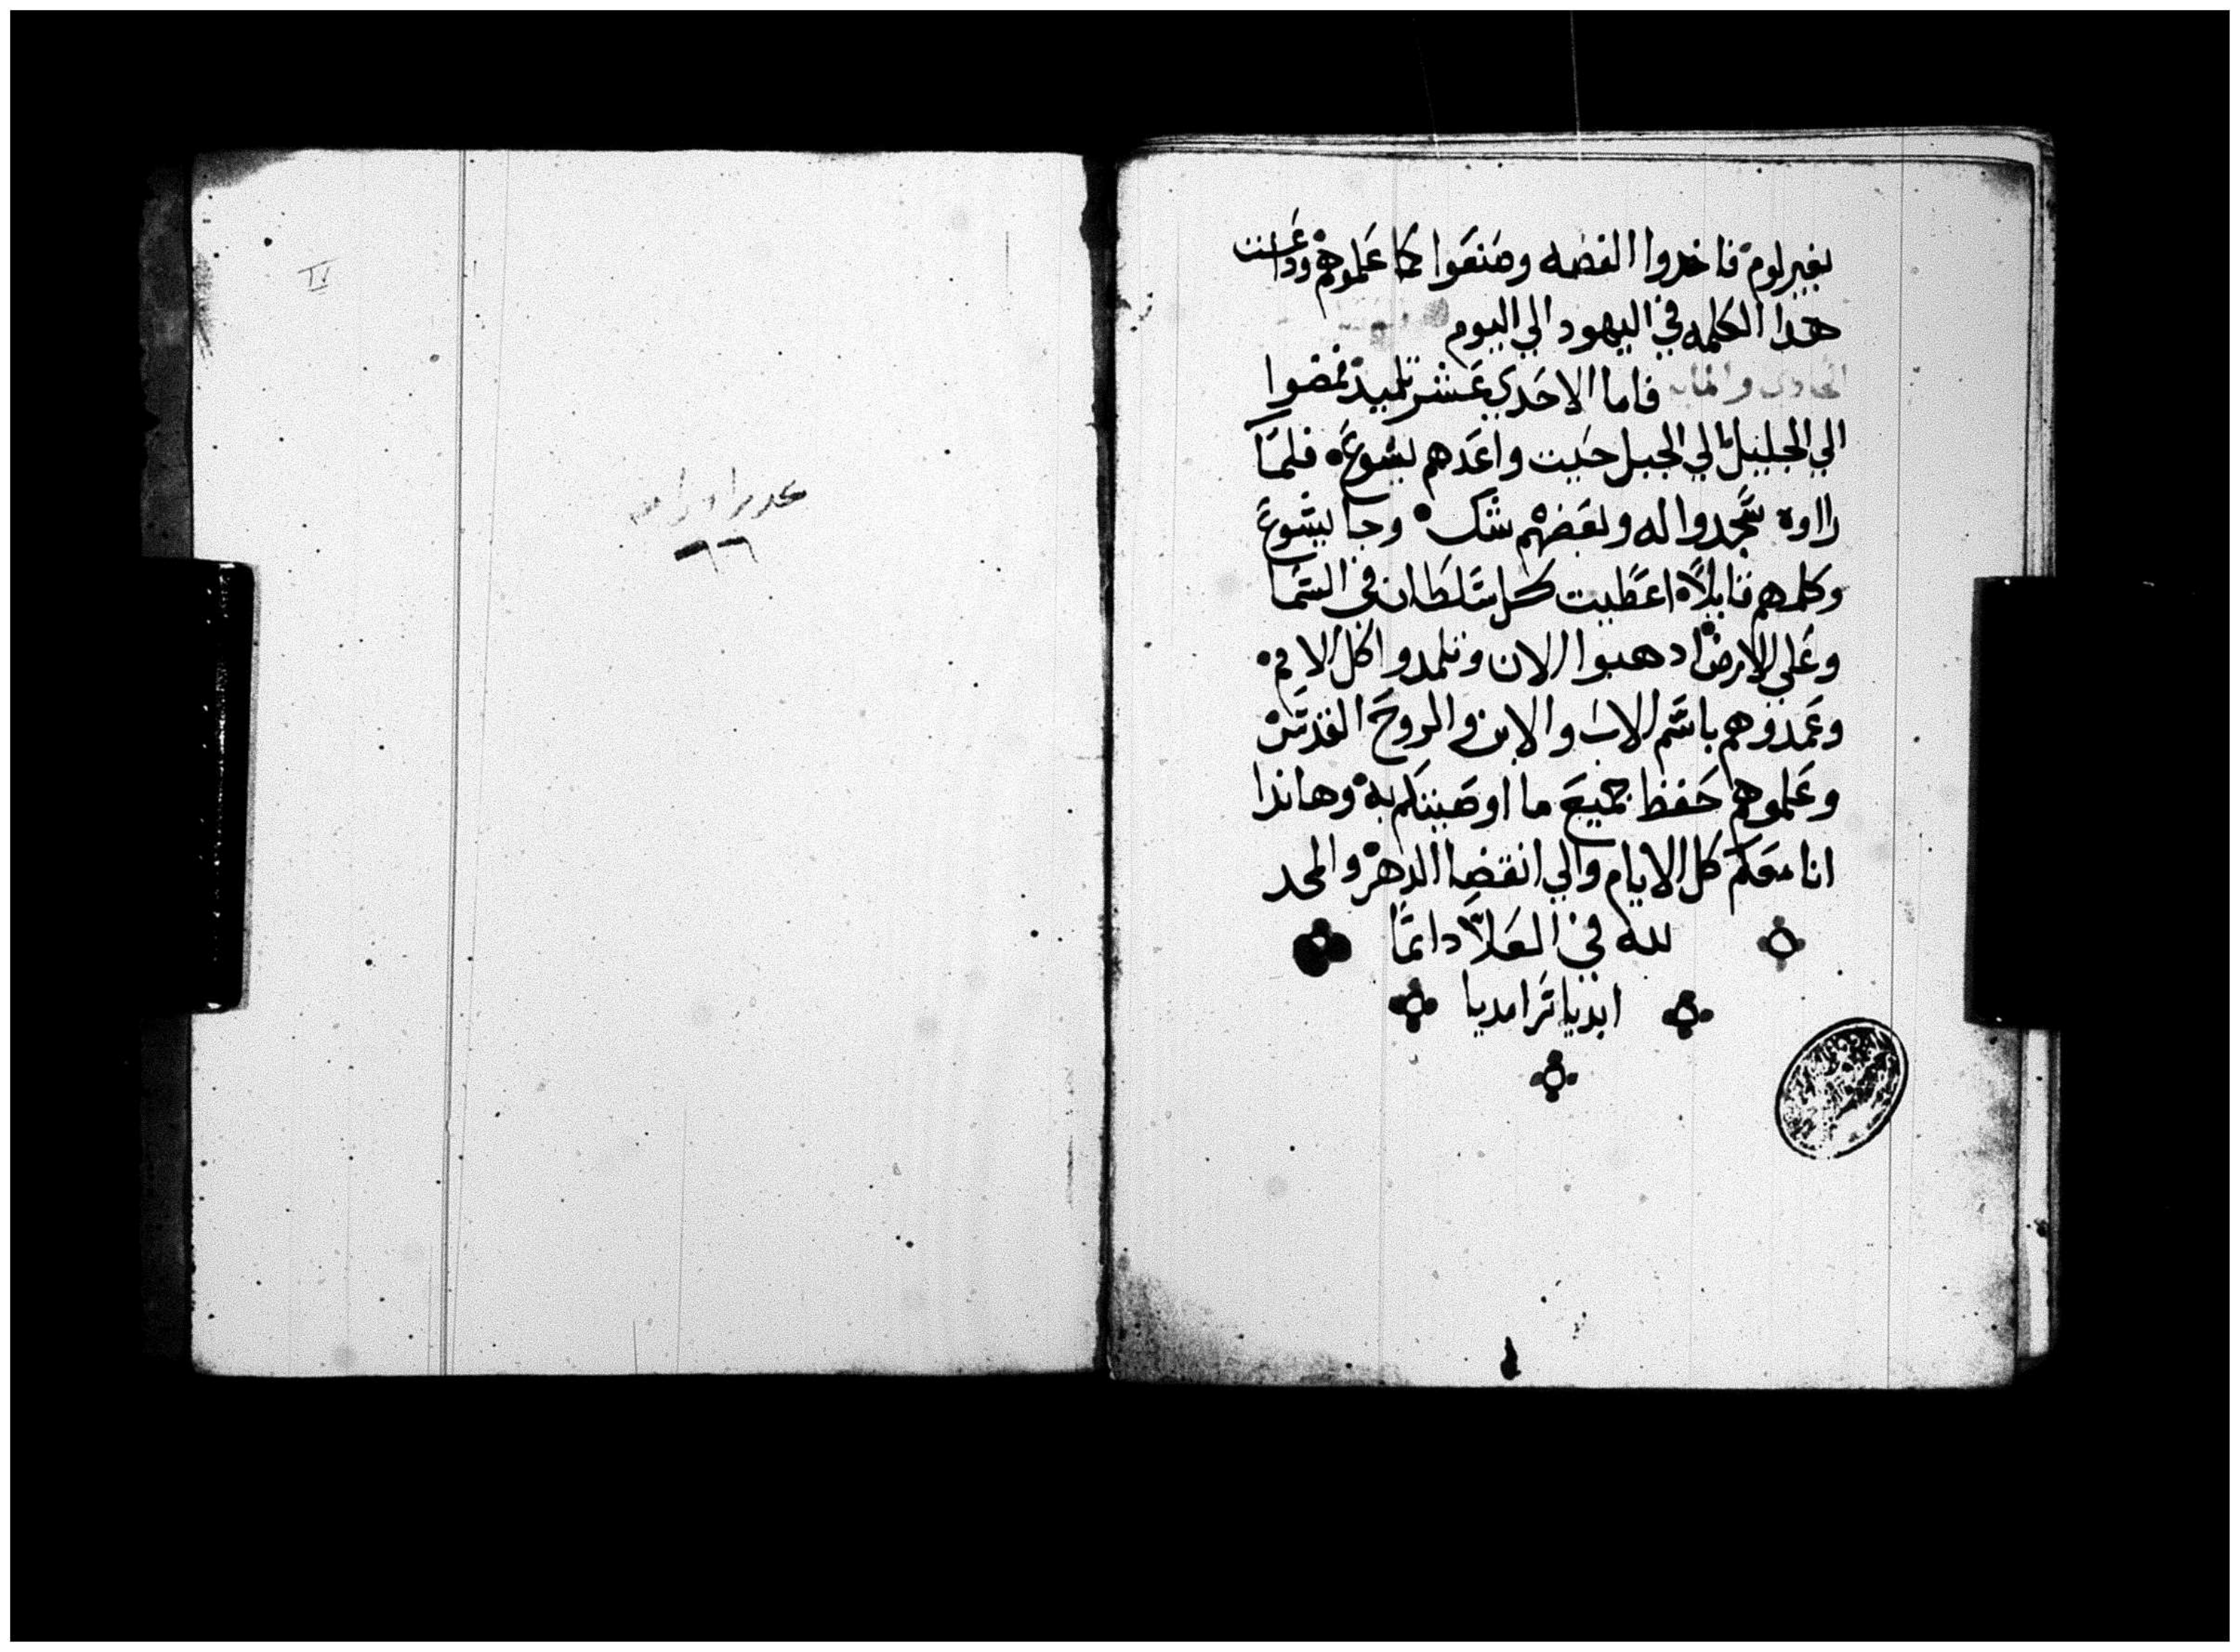 بغير لوم فاخدوا الفضه وصنعوا كما علموهم وداعت
هدا الكلمه في اليهود الي اليوم
الحادي والمايه فاما الاحدي عشر تلميد فمضوا
الي الجليل الي الجبل حيت واعدهم يشوع فلما
رااوه سجدوا له وبعضهم شك وجا يشوع
وكلمهم قايلا اعطيت كل سلطان في السما
وعلي الارض ادهبوا الان وتلمدوا كل الامم
وعمدوهم باسم الاب والابن والروح القدس
وعلموهم حفظ جميع ما اوصيتكم به وهاندا
انا معكم كل الايام والي انقضا الدهر والمجد
لله في العلا دايما
ابديا سرامديا
٦٦